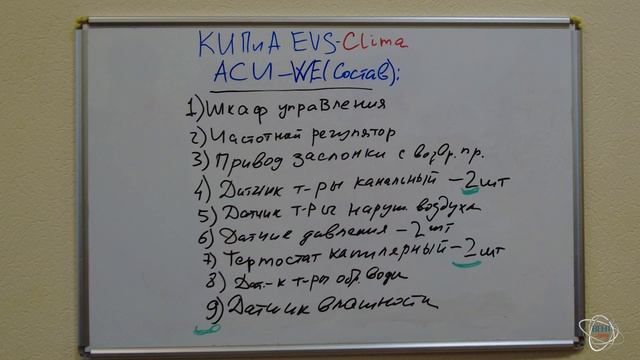 КИПиА EVS-Clima
АСИ-WE(Состав):
1) Шкаф управления
2) Частотный регулятор
3) Привод заслонки с возвр. пр.
4) Датчик т-ры канальный - 2 шт
5) Датчик т-ры наруж. воздуха
6) Датчик давления - 2 шт
7) Термостат капилярный - 2 шт
8) Дат-к т-ры обр. воды
9) Датчик влажности
ВЕНТ